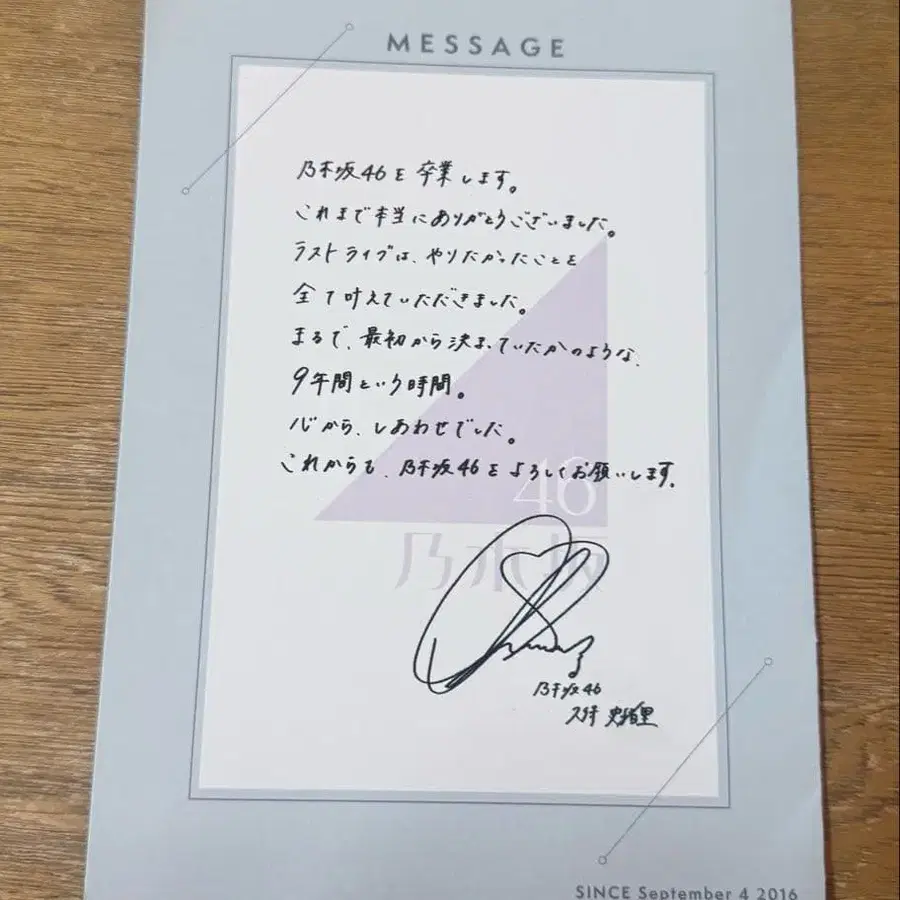 MESSAGE
乃木坂46を卒業します。
これまで本当にありがとうございました。
ラストライブは、やりたかったことを
全て叶えていただきました。
まるで、最初から決まっていたかのような、
9年間という時間。
心から、しあわせでした。
これからも、乃木坂46をよろしくお願いします。
46
乃木坂
乃木坂46
久保 史緒里
SINCE September 4 2016